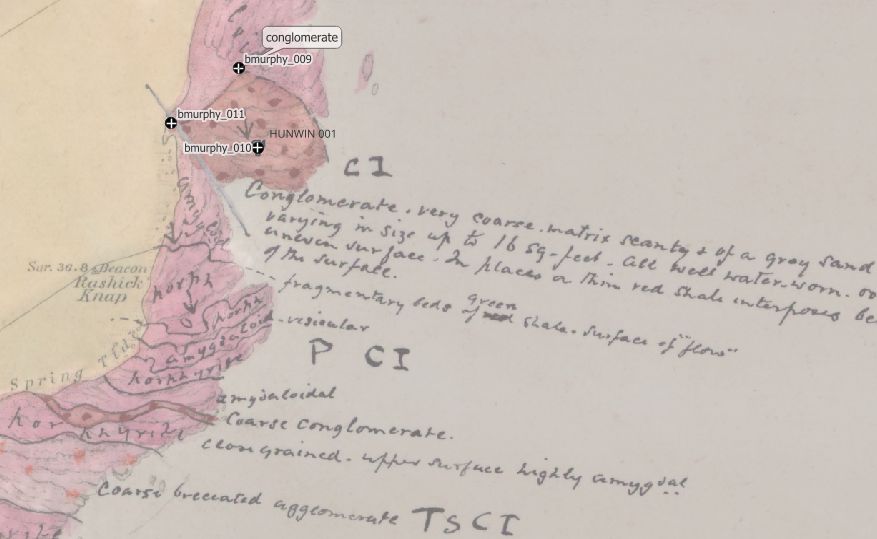 conglomerate
bmurphy_009
bmurphy_011
HUNWIN 001
bmurphy_010
CI
Conglomerate. very coarse. matrix scanty & of a gray sand
varying in size up to 16 sq-feet. all well water-worn.
uneven surface. In places a thin red shale interposes be
of the surface.
amygdal
Sur. 36.8 Beacon
Rashick
Knap
porph
fragmentary beds of green shale. surface of "flow"
porph
vesicular
amygdaloid
P CI
porphyrite
Spring
amygdaloidal
porphyrite
Coarse conglomerate.
closegrained. upper surface highly amygdal
Coarse brecciated agglomerate
TSCI